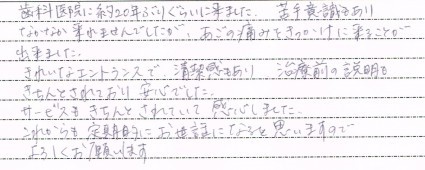 歯科医院に約20年ぶりくらいに来ました。苦手意識もあり
なかなか来れませんでしたが、あごの痛みをきっかけに来ることが
出来ました。
きれいなエントランスで 清潔感もあり 治療前の説明も
きちんとされており 安心でした。
サービスもきちんとされていて 感心しました。
これからも定期的にお世話になると思いますので
よろしくお願います